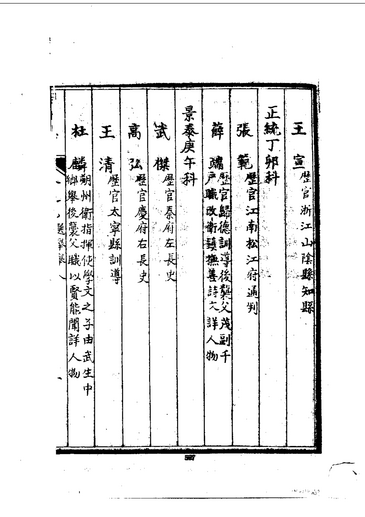 王宣 歷官浙江山陰縣知縣
正統丁卯科
張範 歷官江南松江府通判
薛 歷官歸德訓導後襲父茂副千
戶職改衛鎮撫善詩文詳人物
景泰庚午科
武傑 歷官秦府左長史
高弘 歷官慶府右長史
王清 歷官太寧縣訓導
杜麟 朔州衛指揮使學文之子由武生中
鄉舉後襲父職以賢能聞詳人物
選舉